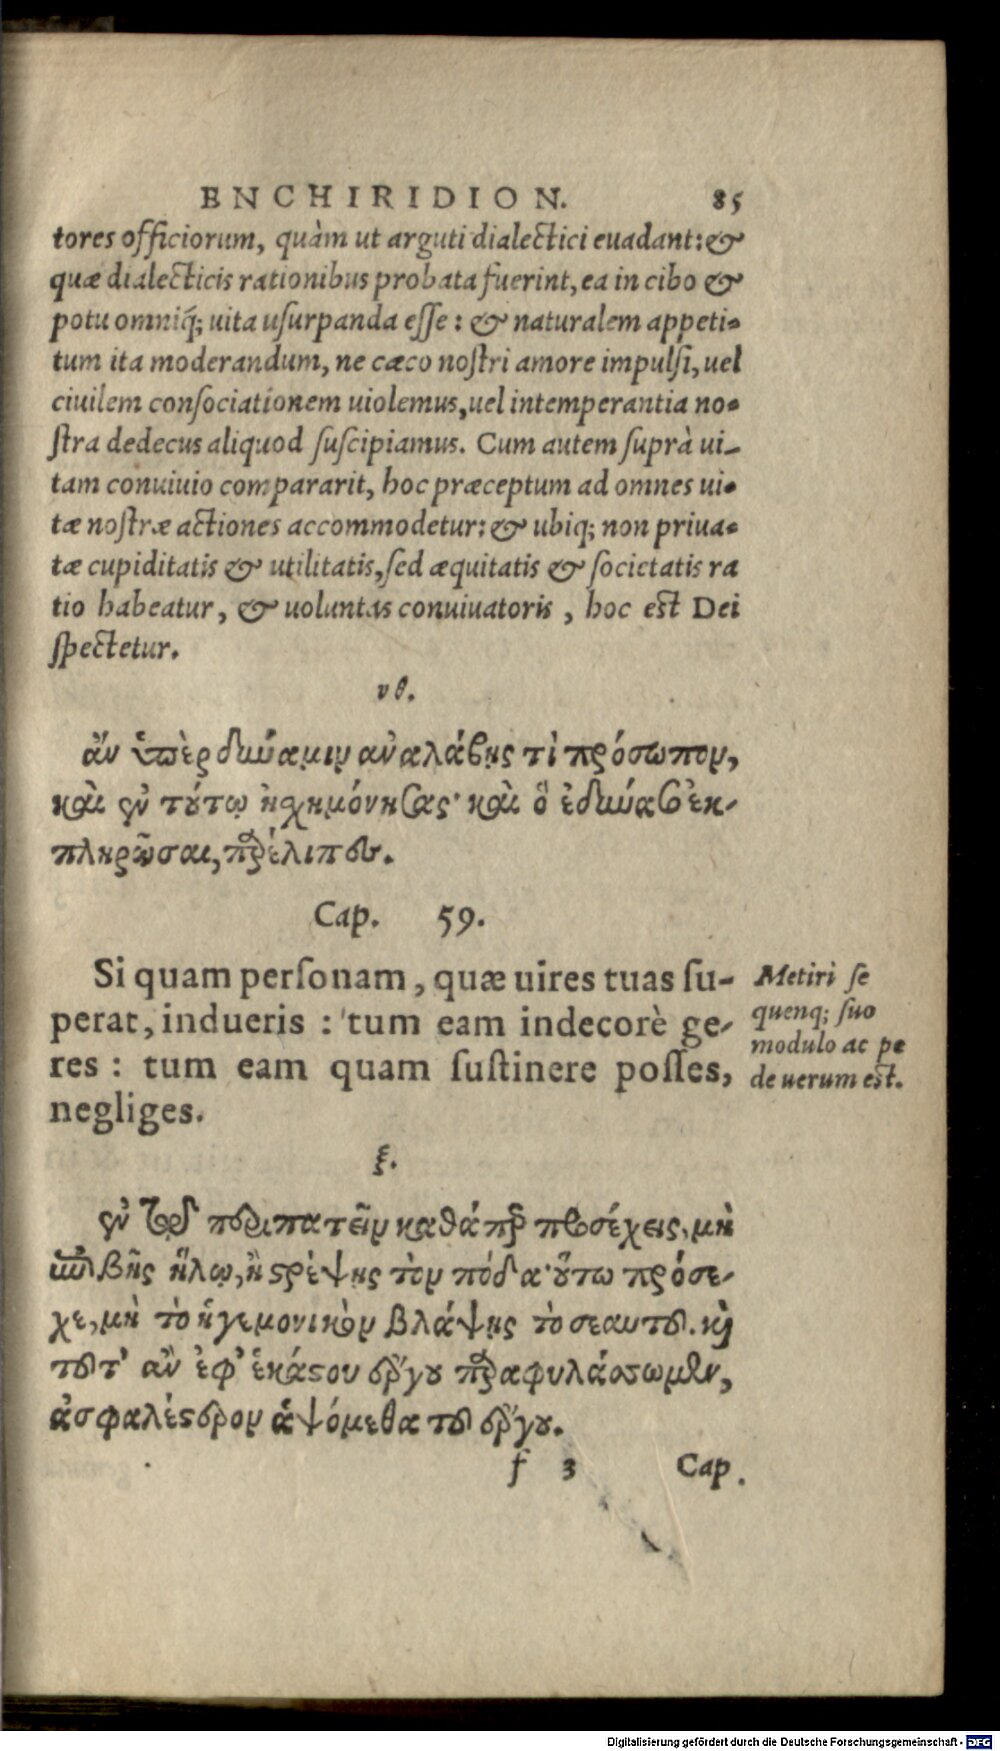 ENCHIRIDION. 85
tores officiorum, quàm ut arguti dialectici euadant: &
quæ dialecticis rationibus probata fuerint, ea in cibo &
potu omniq́; uita uſurpanda eſſe: & naturalem appeti-
tum ita moderandum, ne cæco noſtri amore impulſi, uel
ciuilem conſociationem uiolemus, uel intemperantia no-
ſtra dedecus aliquod ſuſcipiamus. Cum autem ſuprà ui-
tam conuiuio compararit, hoc præceptum ad omnes ui-
tæ noſtræ actiones accommodetur: & ubiq; non priua-
tæ cupiditatis & utilitatis, ſed æquitatis & ſocietatis ra
tio habeatur, & uoluntas conuiuatoris, hoc est Dei
ſpectetur.
νθ.
ἂν ὑπὲρ δύναμιν ἀναλάβῃς τὶ πρόσωπον,
καὶ ἐν τούτῳ ἠχημόνησας· καὶ ὃ ἐδύνασο ἐκ-
πληρῶσαι, παρέλιπες.
Cap. 59.
Si quam perſonam, quæ uires tuas ſu-
perat, indueris: tum eam indecorè ge-
res: tum eam quam ſuſtinere poſſes,
negliges.
Metiri ſe
quenq; ſuo
modulo ac pe
de uerum est.
ξ.
ἐν τῷ περιπατεῖν καθάπερ προσέχεις, μὴ
ἐπιβῇς ἥλῳ, ἢ στρέψῃς τὸν πόδα· οὕτω πρόσε-
χε, μὴ τὸ ἡγεμονικὸν βλάψῃς τὸ σεαυτοῦ. καὶ
τοῦτ' ἂν ἐφ' ἑκάστου ἔργου παραφυλάσσωμεν,
ἀσφαλέστερον ἁψόμεθα τοῦ ἔργου.
f 3 Cap.
Digitalisierung gefördert durch die Deutsche Forschungsgemeinschaft - DFG